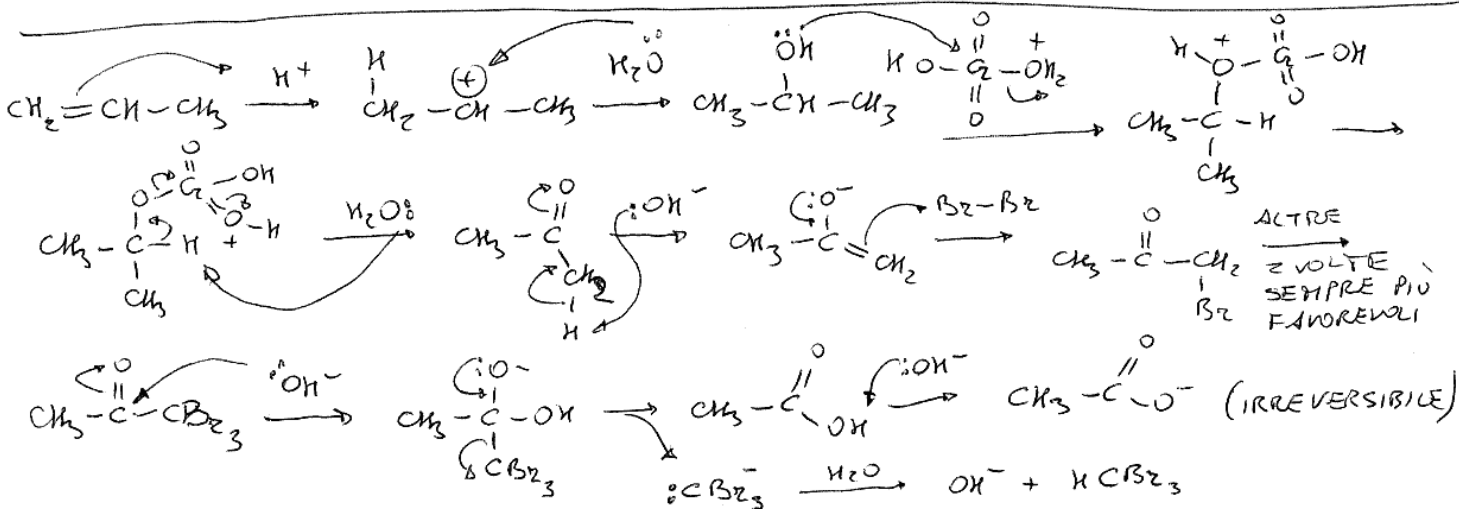 CH₂=CH-CH₃ H⁺ H CH₂-CH-CH₃ + H₂O OH CH₃-CH-CH₃ HO-Cr-OH₂ O O + H-O-Cr-OH O O + CH₃-C-H CH₃
CH₃-C-H CH₃ O-Cr-OH O O-H + H₂O: CH₃-C O CH₂ H :OH⁻ CH₃-C=CH₂ :O⁻ Br-Br CH₃-C-CH₂ O Br ALTRE
2 VOLTE
SEMPRE PIÙ
FAVOREVOLI
CH₃-C-CBr₃ O :OH⁻ CH₃-C-OH :O⁻ CBr₃ CH₃-C O OH :OH⁻ CH₃-C O O⁻ (IRREVERSIBILE)
:CBr₃⁻ H₂O OH⁻ + HCBr₃